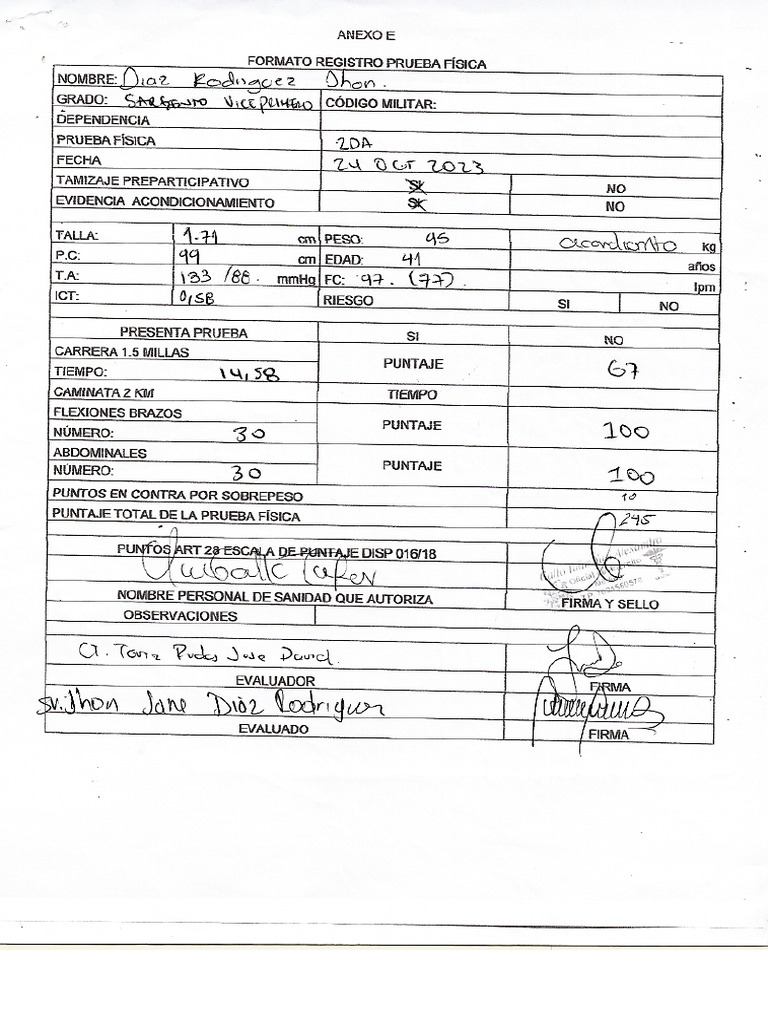 ANEXO E
FORMATO REGISTRO PRUEBA FÍSICA
NOMBRE: Diaz Rodriguez Jhon.
GRADO: SARGENTO VICEPRIMERO CÓDIGO MILITAR:
DEPENDENCIA
PRUEBA FÍSICA 2DA
FECHA 24 OCT 2023
TAMIZAJE PREPARTICIPATIVO SI NO
EVIDENCIA ACONDICIONAMIENTO SI NO
TALLA: 1.71 cm PESO: 95 Kg
P.C: 99 cm EDAD: 41 años
T.A: 133/88. mmHg FC: 97. (77). lpm
ICT: 0,58 RIESGO SI NO
PRESENTA PRUEBA SI NO
CARRERA 1.5 MILLAS
TIEMPO: 14,58 PUNTAJE 67
CAMINATA 2 KM TIEMPO
FLEXIONES BRAZOS
NÚMERO: 30 PUNTAJE 100
ABDOMINALES
NÚMERO: 30 PUNTAJE 100
PUNTOS EN CONTRA POR SOBREPESO 10
PUNTAJE TOTAL DE LA PRUEBA FÍSICA 245
PUNTOS ART 28 ESCALA DE PUNTAJE DISP 016/18
NOMBRE PERSONAL DE SANIDAD QUE AUTORIZA FIRMA Y SELLO
OBSERVACIONES
Jose David.
EVALUADOR FIRMA
SV. Jhon Jane Diaz Rodriguez
EVALUADO FIRMA